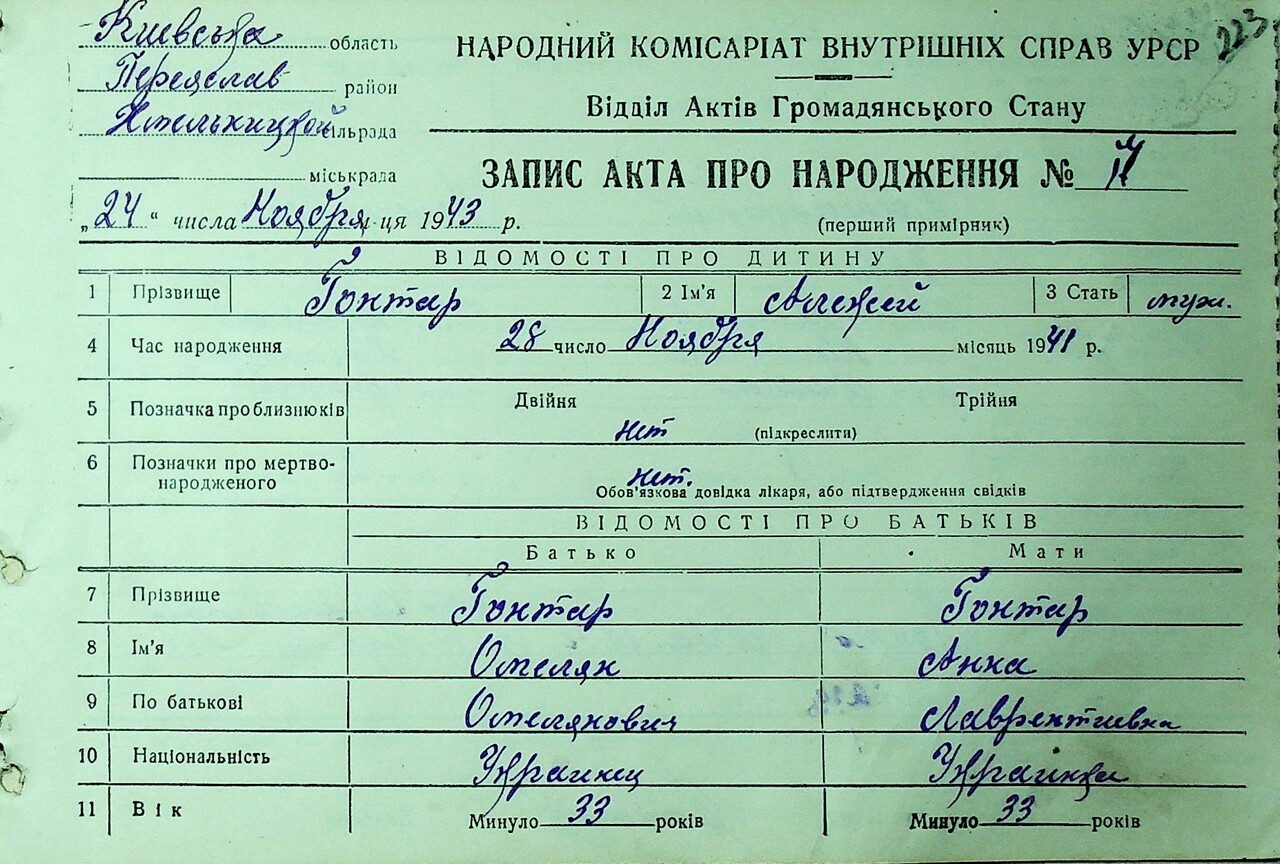 Киевська область
Переяслав район
Хмельницкой сільрада
міськрада
НАРОДНИЙ КОМІСАРІАТ ВНУТРІШНІХ СПРАВ УРСР 223
Відділ Актів Громадянського Стану
ЗАПИС АКТА ПРО НАРОДЖЕННЯ №
„24“ числа Ноября ця 1943 р. (перший примірник)
ВІДОМОСТІ ПРО ДИТИНУ
1 Прізвище Гонтар 2 Ім'я Алексей 3 Стать муж.
4 Час народження 28 число Ноября місяць 1941 р.
5 Позначка про близнюків Двійня Трійня
нет (підкреслити)
6 Позначки про мертво-
народженого нет.
Обов'язкова довідка лікаря, або підтвердження свідків
ВІДОМОСТІ ПРО БАТЬКІВ
Батько Мати
7 Прізвище Гонтар Гонтар
8 Ім'я Омелян Анна
9 По батькові Омелянович Лаврентиевна
10 Національність Украинец Украинка
11 Вік Минуло 33 років Минуло 33 років